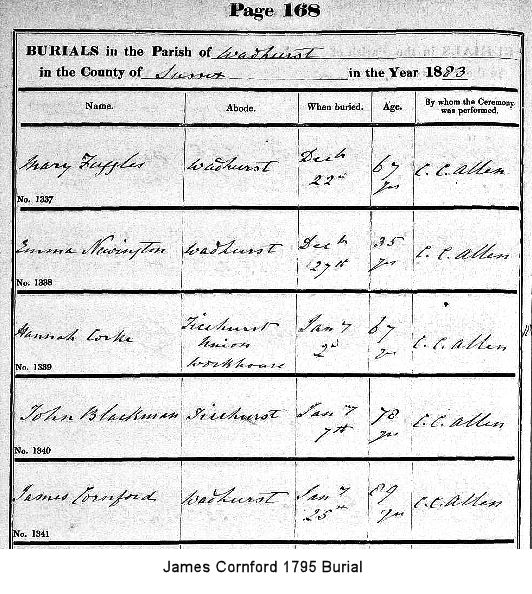 Page 168
BURIALS in the Parish of Wadhurst
in the County of Sussex in the Year 1883
Name. Abode. When buried. Age. By whom the Ceremony was performed.
Mary Fuggles Wadhurst Decr 22nd 67 yrs C. C. Allen
No. 1337
Emma Newington Wadhurst Decr 27th 35 yrs C. C. Allen
No. 1338
Hannah Corke Ticehurst Union Workhouse Jany 2nd 67 yrs C. C. Allen
No. 1339
John Blackman Ticehurst Jany 7th 78 yrs C. C. Allen
No. 1340
James Cornford Wadhurst Jany 25th 89 yrs C. C. Allen
No. 1341
James Cornford 1795 Burial